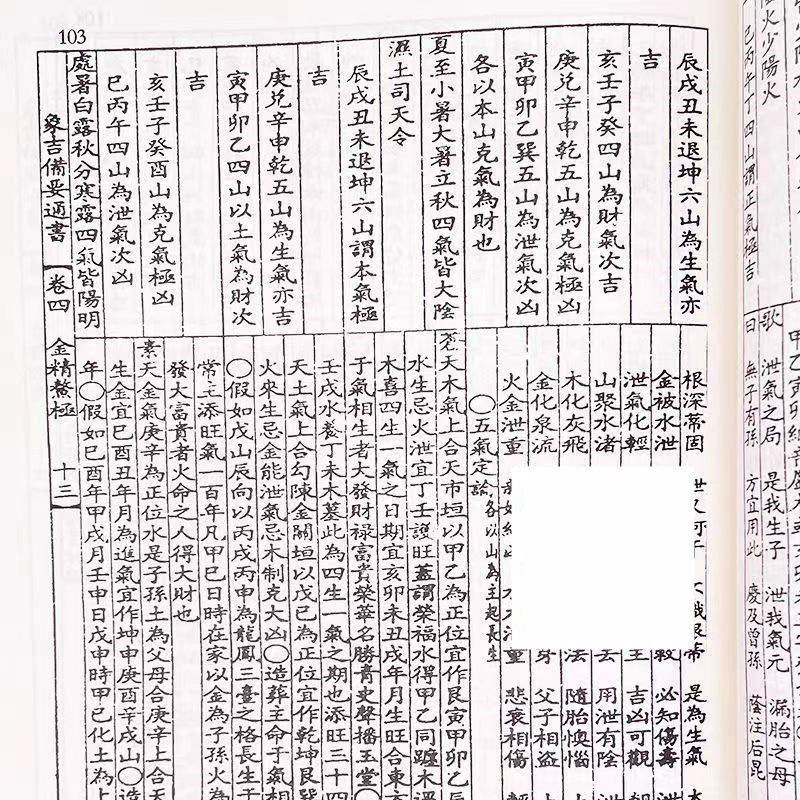 103
辰戌丑未退坤六山為生氣亦
吉
亥壬子癸四山為財氣次吉
庚兌辛申乾五山為克氣極凶
寅甲卯乙巽五山為泄氣次凶
各以本山克氣為財也
夏至小暑大暑立秋四氣皆大陰
濕土司天令
辰戌丑未退坤六山謂本氣極
吉
庚兌辛申乾五山為生氣亦吉
寅甲卯乙四山以土氣為財次
吉
亥壬子癸酉山為克氣極凶
巳丙午四山為泄氣次凶
處暑白露秋分寒露四氣皆陽明
象吉備要通書 卷四 金精鰲極 十三
根深蒂固 是為生氣
金被水泄 必知傷壽
泄氣化輕 吉凶可觀
山聚水渚 用泄有陰
木化灰飛 隨胎懊惱
金化泉流 父子相盜
火金泄重 悲哀相傷
〇五氣定訟 各以山為主起長生
蒼天木氣上合天市垣以甲乙為正位宜作艮寅甲卯乙
水生忌火泄宜丁壬護旺蓋謂榮福水得甲乙同躔木
木喜四生一氣之日期宜亥卯未丑戌年月生旺合東方
于氣相生者大發財祿富貴榮華名勝青史聲播玉堂〇
壬戌水養丁未木墓此為四生一氣之期也添旺三十四
天土氣上合勾陳金關垣以戊己為正位宜作乾坤艮巽
火來生忌金能泄氣忌木制克大凶〇造葬主命于氣相
〇假如戊山辰向以丙戌丙申為龍鳳三臺之格長生于
常主添旺氣一百年凡甲巳日時在家以金為子孫火為
發大富貴者火命之人得大財也
素天金氣庚辛為正位水是子孫土為父母合庚辛上合天
生金宜巳酉丑年月為進氣宜作坤申庚酉辛戌山〇造
年〇假如己酉年甲戌月壬申日戊申時甲己化土為上
火少陽火
巳丙午丁四山謂正氣極吉
歌 泄氣之局 是我生子 泄我氣元 漏胎之母
曰 無子有孫 方宜用此 慶及曾孫 蔭注后昆